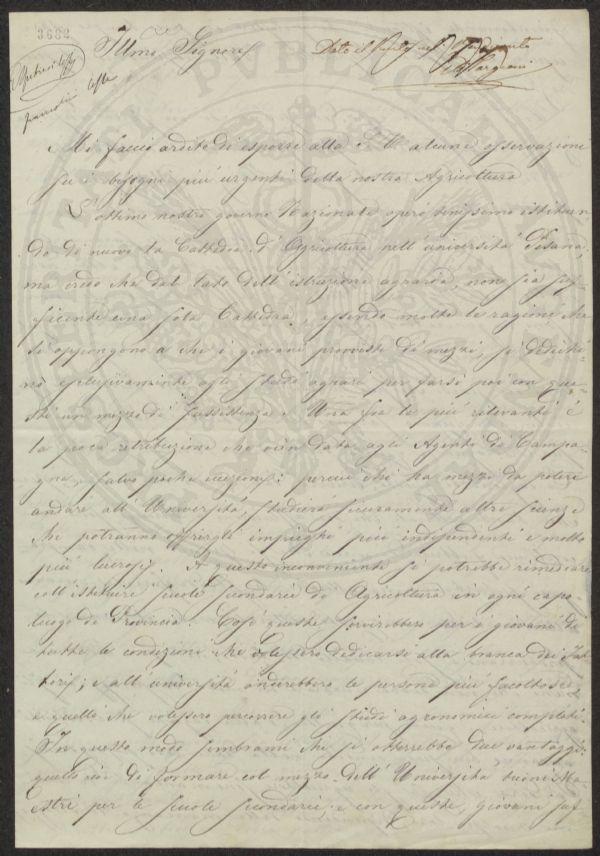 3662
Illmo Signore
Mi faccio ardito di esporre alla S. V. alcune osservazioni
su i bisogni più urgenti della nostra Agricoltura
L'ottimo nostro governo Nazionale operò benissimo istituen-
do di nuovo la Cattedra d'Agricoltura nell'università Pisana,
ma credo che dal lato dell'istruzione agraria, non sia suf-
ficiente una sola Cattedra, essendo molte le ragioni che
si oppongono a che i giovani provvisti di mezzi, si dedichi-
no esclusivamente agli studi agrari per farsi poi con que-
sti un mezzo di sussistenza. Una fra le più rilevanti è
la poca retribuzione che vien data agli Agenti di Campa-
gna, salvo poche eccezioni: perciò chi ha mezzi da potere
andare all'Università, studierà sicuramente altre scienze
che potranno offrirgli impieghi più indipendenti e molto
più lucrosi. A questo inconveniente si potrebbe rimediare
coll'istituire scuole secondarie di Agricoltura in ogni capo-
luogo di Provincia. Così queste servirebbero per i giovani di
tutte le condizioni che volessero dedicarsi alla branca dei Fat-
tori; e all'università anderebbero le persone più facoltose,
e quelli che volessero percorrere gli studi agronomici completi.
In questo modo sembrami che si otterrebbe due vantaggi:
quello cioè di formare col mezzo dell'Università buoni Ma-
estri per le scuole secondarie; e con queste, giovani suf-